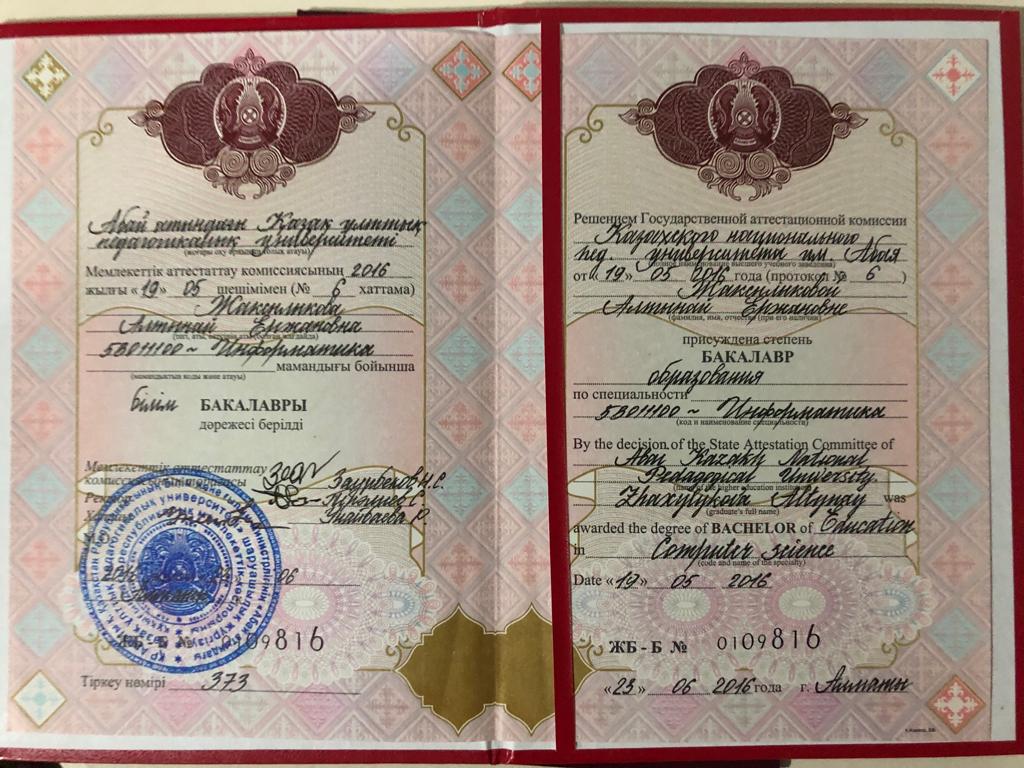 Абай атындағы Қазақ ұлттық
педагогикалық университеті
(жоғары оқу орнының толық атауы)
Мемлекеттік аттестаттау комиссиясының 2016
жылғы «19» 05 шешімімен (№ 6 хаттама)
Жаксыликова
Алтынай Ержановна
(тегі, аты, әкесінің аты (болған жағдайда)
5В011100 ~ Информатика
мамандығы бойынша
(мамандықтың коды және атауы)
білім БАКАЛАВРЫ
дәрежесі берілді
Мемлекеттік аттестаттау
комиссиясының төрағасы
Ректор
М.О.
06
ЖБ - Б № 0109816
Тіркеу нөмірі 373
Решением Государственной аттестационной комиссии
Казахского национального
пед. университета им. Абая
(полное наименование высшего учебного заведения)
от «19» 05 2016 года (протокол № 6)
Жаксыликовой
Алтынай Ержановне
(фамилия, имя, отчество (при его наличии)
присуждена степень
БАКАЛАВР
образования
по специальности
5В011100 ~ Информатика
(код и наименование специальности)
By the decision of the State Attestation Committee of
Abai Kazakh National
Pedagogical University
(name of the higher education institution)
Zhaxylykova Altynay was
(graduate's full name)
awarded the degree of BACHELOR of Education
in Computer science
(code and name of the specialty)
Date «19» 05 2016
ЖБ - Б № 0109816
«23» 06 2016 года г. Алматы